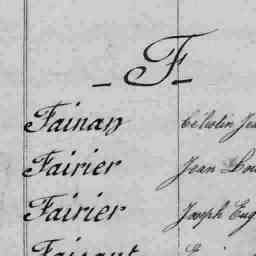 - F -
Fainan
Fairier Jean
Fairier Joseph Eug
Faisant